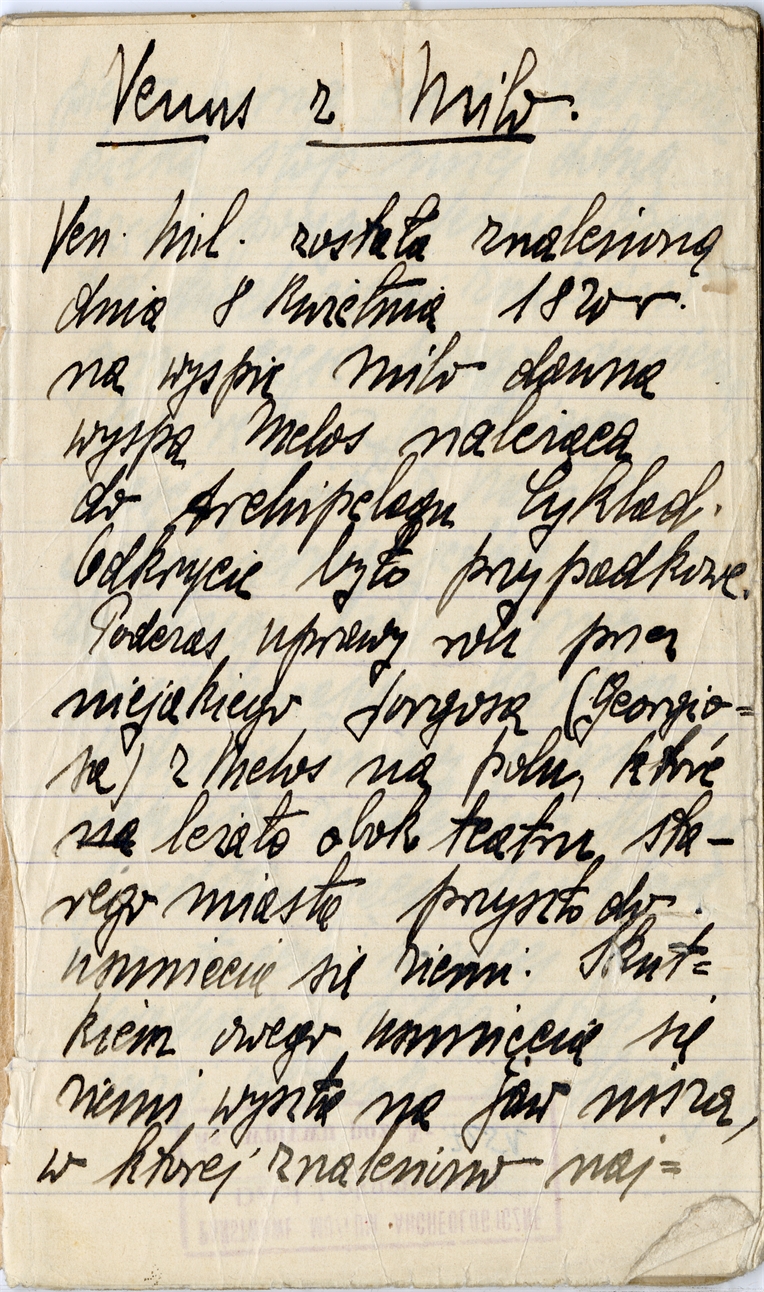 Venus z Milo.
Ven. Mil. została znalezioną
dnia 8 kwietnia 1820 r.
na wyspie Milo dawna
wyspa Melos należąca
do Archipelagu Cyklad.
Odkrycie było przypadkowe.
Podczas uprawy roli przez
niejakiego Jorgosa (Georgio=
sa) z Melos na polu, które
na leżało obok teatru sta-
rego miasta przyszło do
usunięcia się ziemi. Skut=
kiem owego usunięcia się
ziemi wyszła na jaw nisza,
w której znaleziono naj=